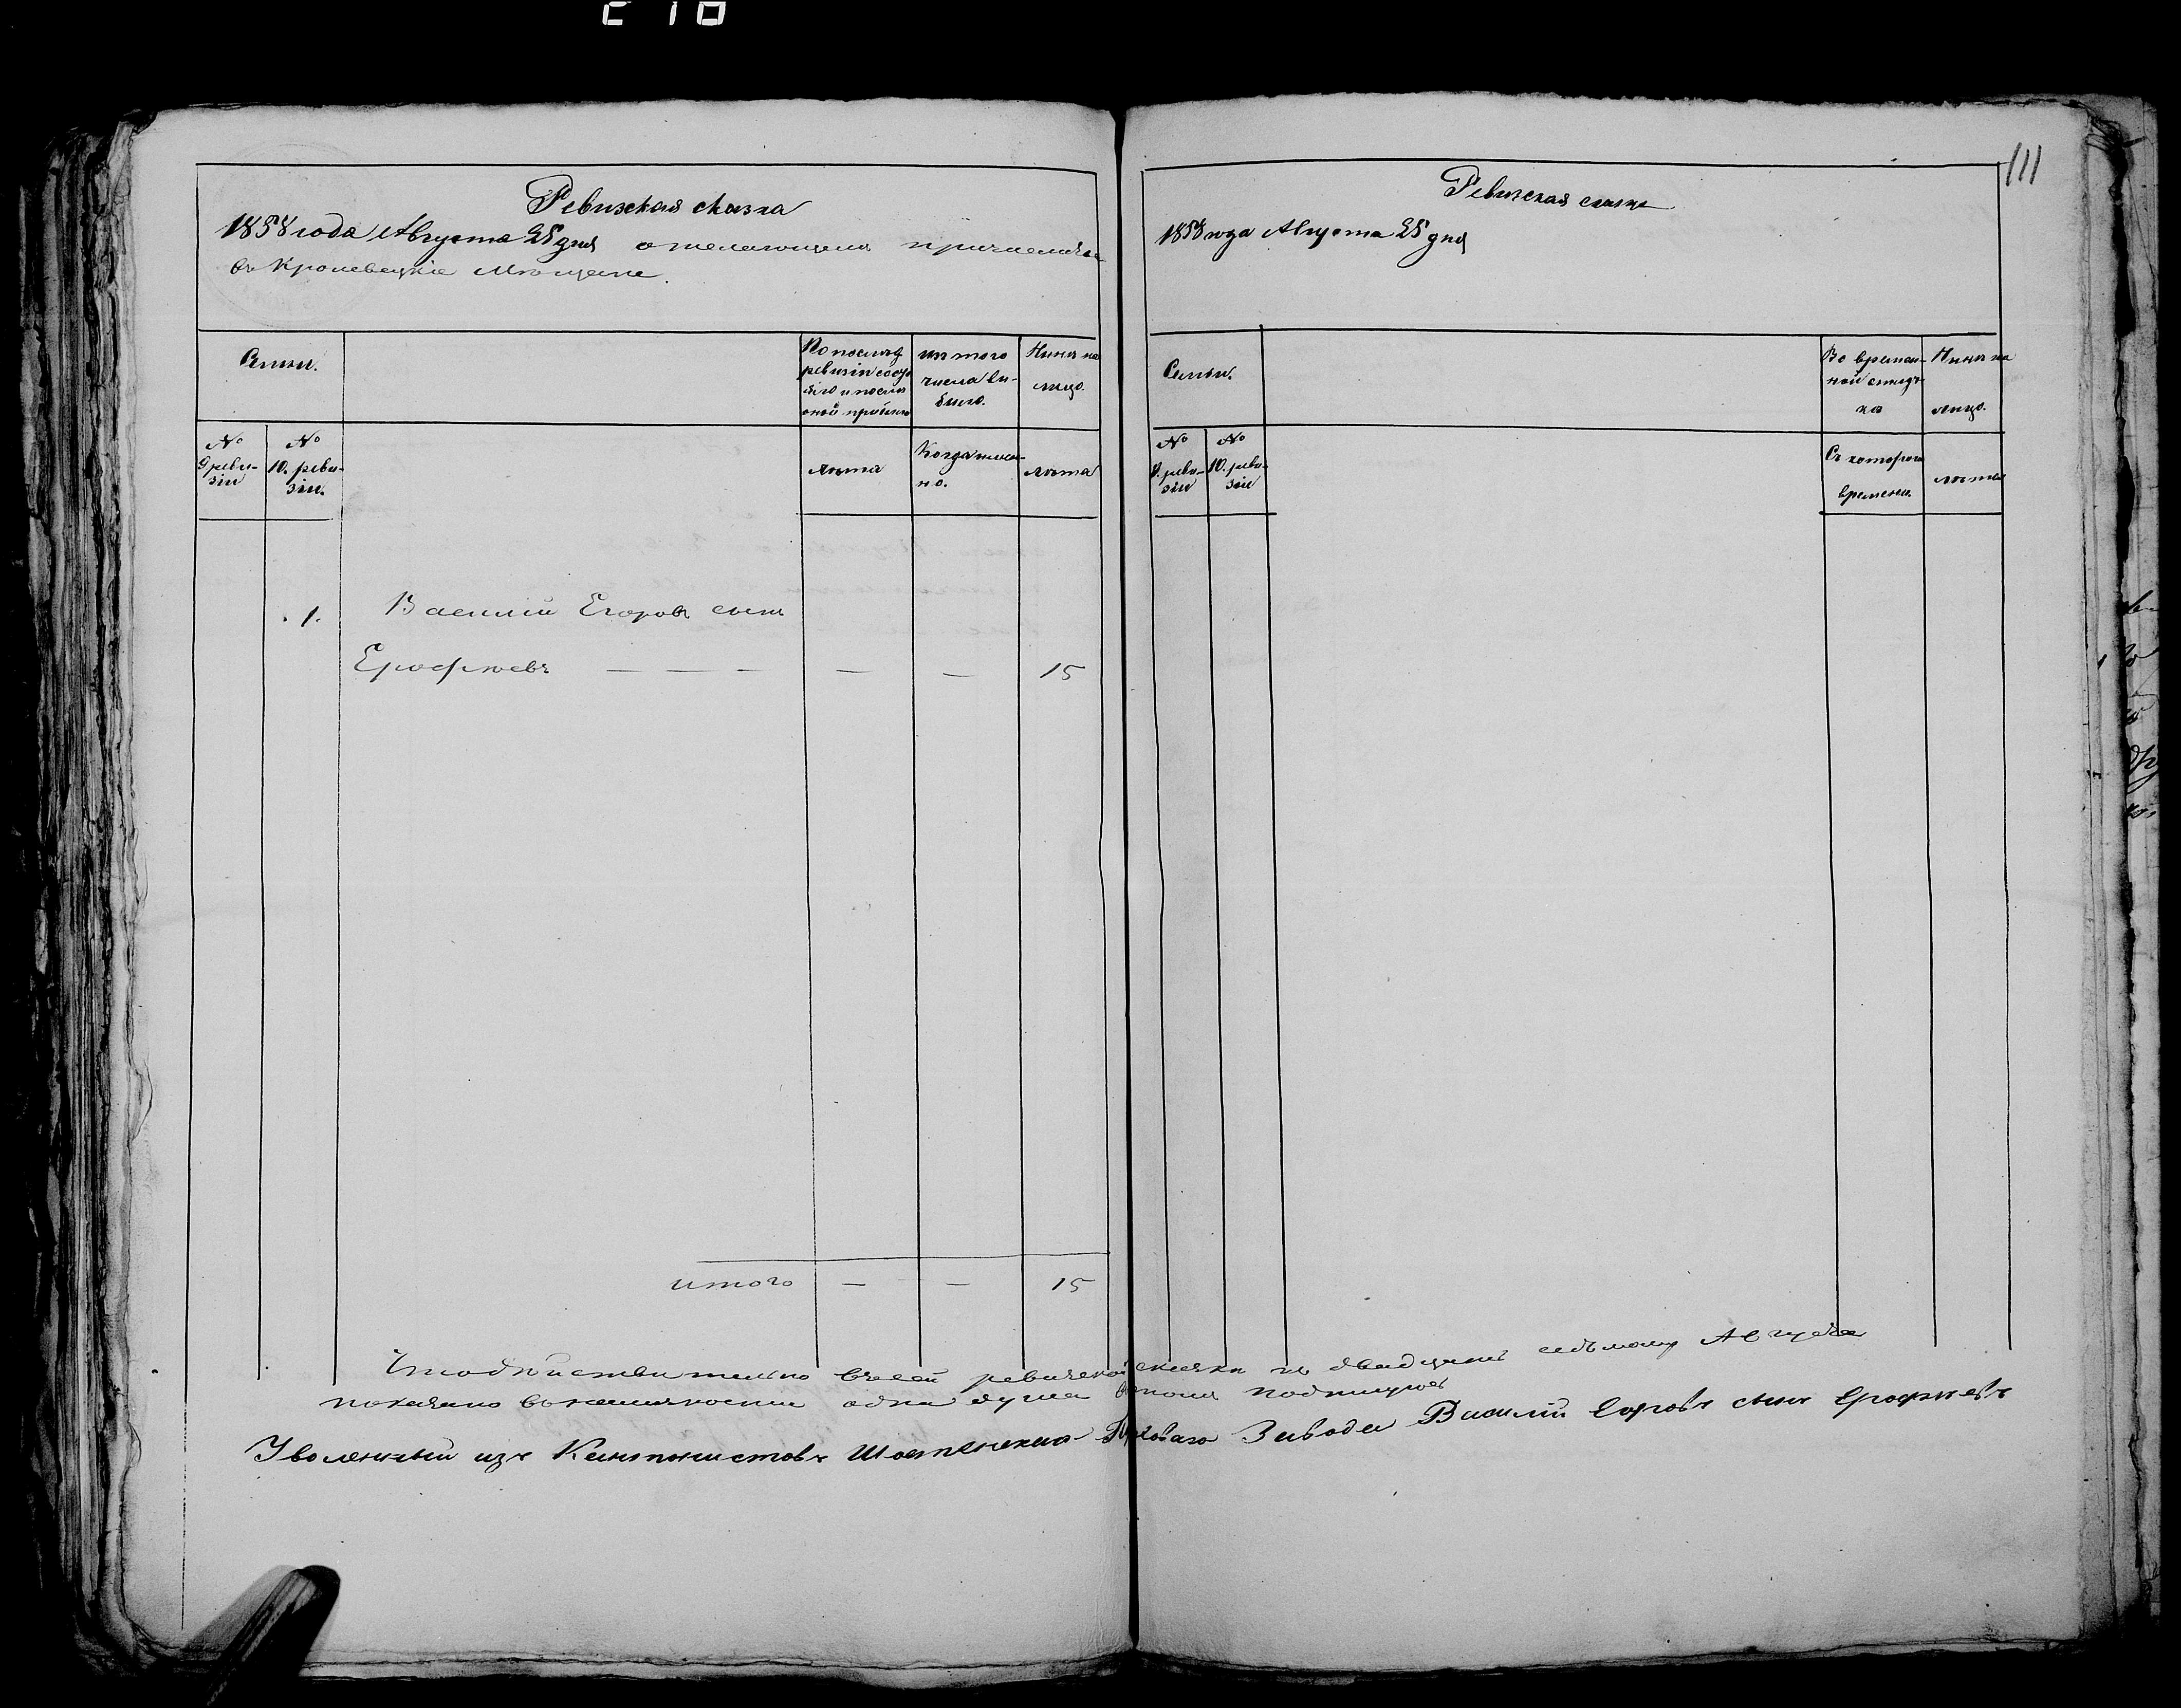 210
Ревизская сказка
1858 года Августа 25 дня о желающемъ причислится
въ Кролевецкіе Мѣщане.
Семьи.
По послѣд
ревизіи сост
яло и послѣ
оной прибыло
изъ того
числа вы-
было.
Нынѣ на
лицо.
№
9 реви-
зіи
№
10. реви-
зіи.
лѣта
Когда имен-
но.
лѣта
1.
Василій Егоровъ сынъ
Ерофѣевъ — — — — — 15
итого — — 15
111
Ревизская сказка
1858 года Августа 25 дня
Семьи.
Во времен-
ной отлуч-
кѣ
Нынѣ на
лицо.
№
9. реви-
зіи
№
10. реви-
зіи
Съ котораго
времени.
лѣта
Что дѣйствительно въ сей ревизской сказки по двадцать седьмому Августа
показано въ наличности одна душа въ томъ подписуюсь
Уволенный изъ Кантонистовъ Шостенскаго Завода Василій Егоровъ сынъ Ерофѣевъ